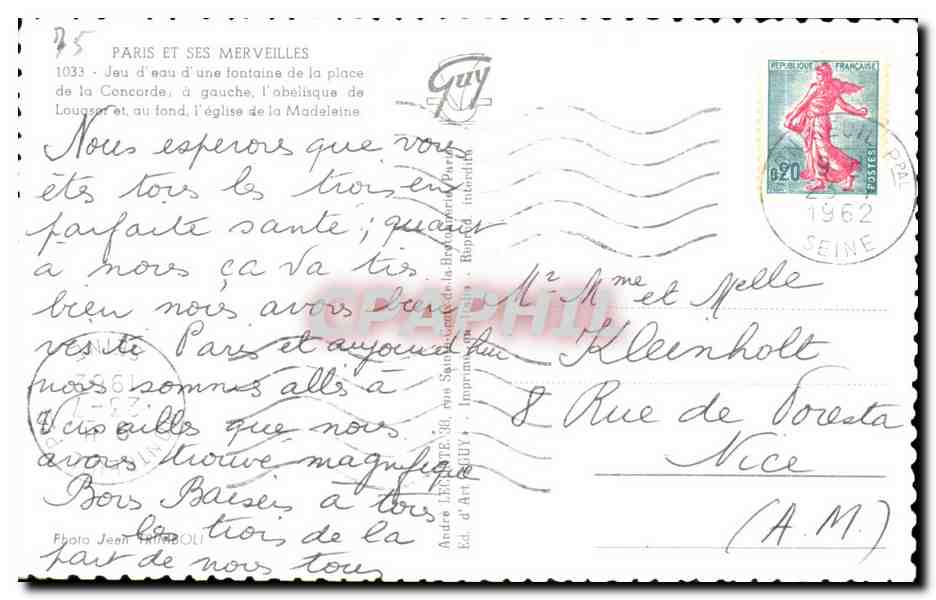 75
PARIS ET SES MERVEILLES
1033 - Jeu d'eau d'une fontaine de la place
de la Concorde, à gauche, l'obélisque de
Louqsor et, au fond, l'église de la Madeleine
Guy
Nous esperons que vous
êtes tous les trois en
parfaite santé; quant
a nous ça va tres
bien nous avons bien
visité Paris et aujourd'hui
nous sommes allés à
Versailles que nous
avons trouvé magnifique
Bons Baisers à tous
les trois de la
part de nous tous
Photo Jean TRIMBOLI
André LECONTE, 38, rue Sainte-Croix-de-la-Bretonnerie, Paris
Ed. d'Art "GUY" - Imprimé en Italie - Reprod. interdite
REPUBLIQUE FRANÇAISE
0,20
POSTES
PPAL
1962
SEINE
Mr Mme et Melle
Kleenholt
8 Rue de Foresta
Nice
(A.M.)
CPAPHIL